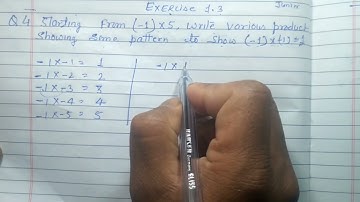 Exercise 1.3
Junier
Q.4 Starting from (-1) × 5, write various product
Showing some pattern to show (-1) × (-1) = 1
-1 × -1 = 1
-1 × -2 = 2
-1 × -3 = 3
-1 × -4 = 4
-1 × -5 = 5
-1 × 1